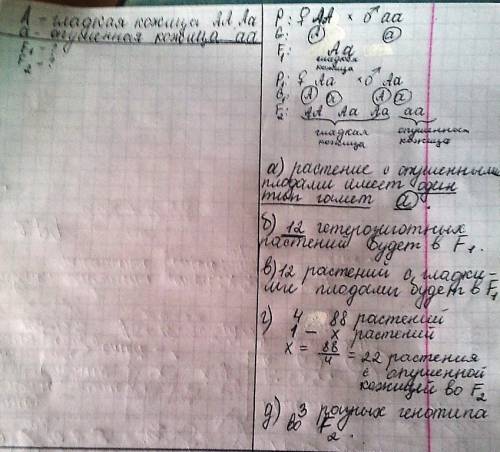 A - гладкая кожица АА, Аа
а - опушенная кожица аа
F₁ - ?
F₂ - ?
P: ♀ АА × ♂ аа
G: А а
F₁: Аа
гладкая
кожица
P₁: ♀ Аа × ♂ Аа
G: А а А а
F₂: АА Аа Аа аа
гладкая кожица опушенная кожица
а) растение с опушенными
плодами имеет один
тип гамет а.
б) 12 гетерозиготных
растений будет в F₁.
в) 12 растений с гладки-
ми плодами будет в F₁
г) 4 - 88 растений
1 - х растений
х = 88/4 = 22 растения
с опушенной
кожицей во F₂
д) 3 разных генотипа
во F₂.